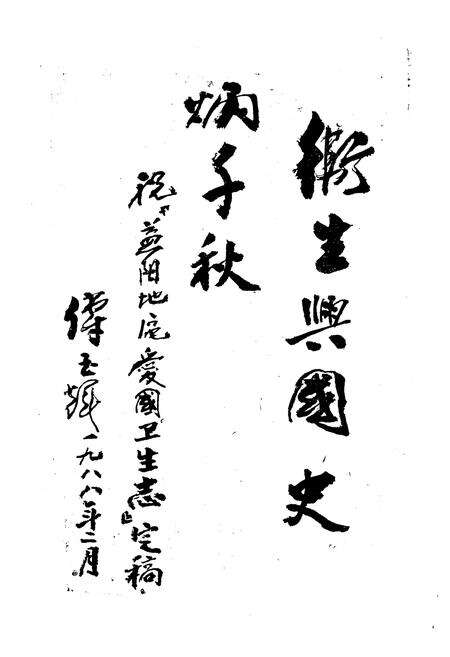 衛生興國史
炳千秋
祝『益阳地区愛國卫生志』完稿
一九八八年二月